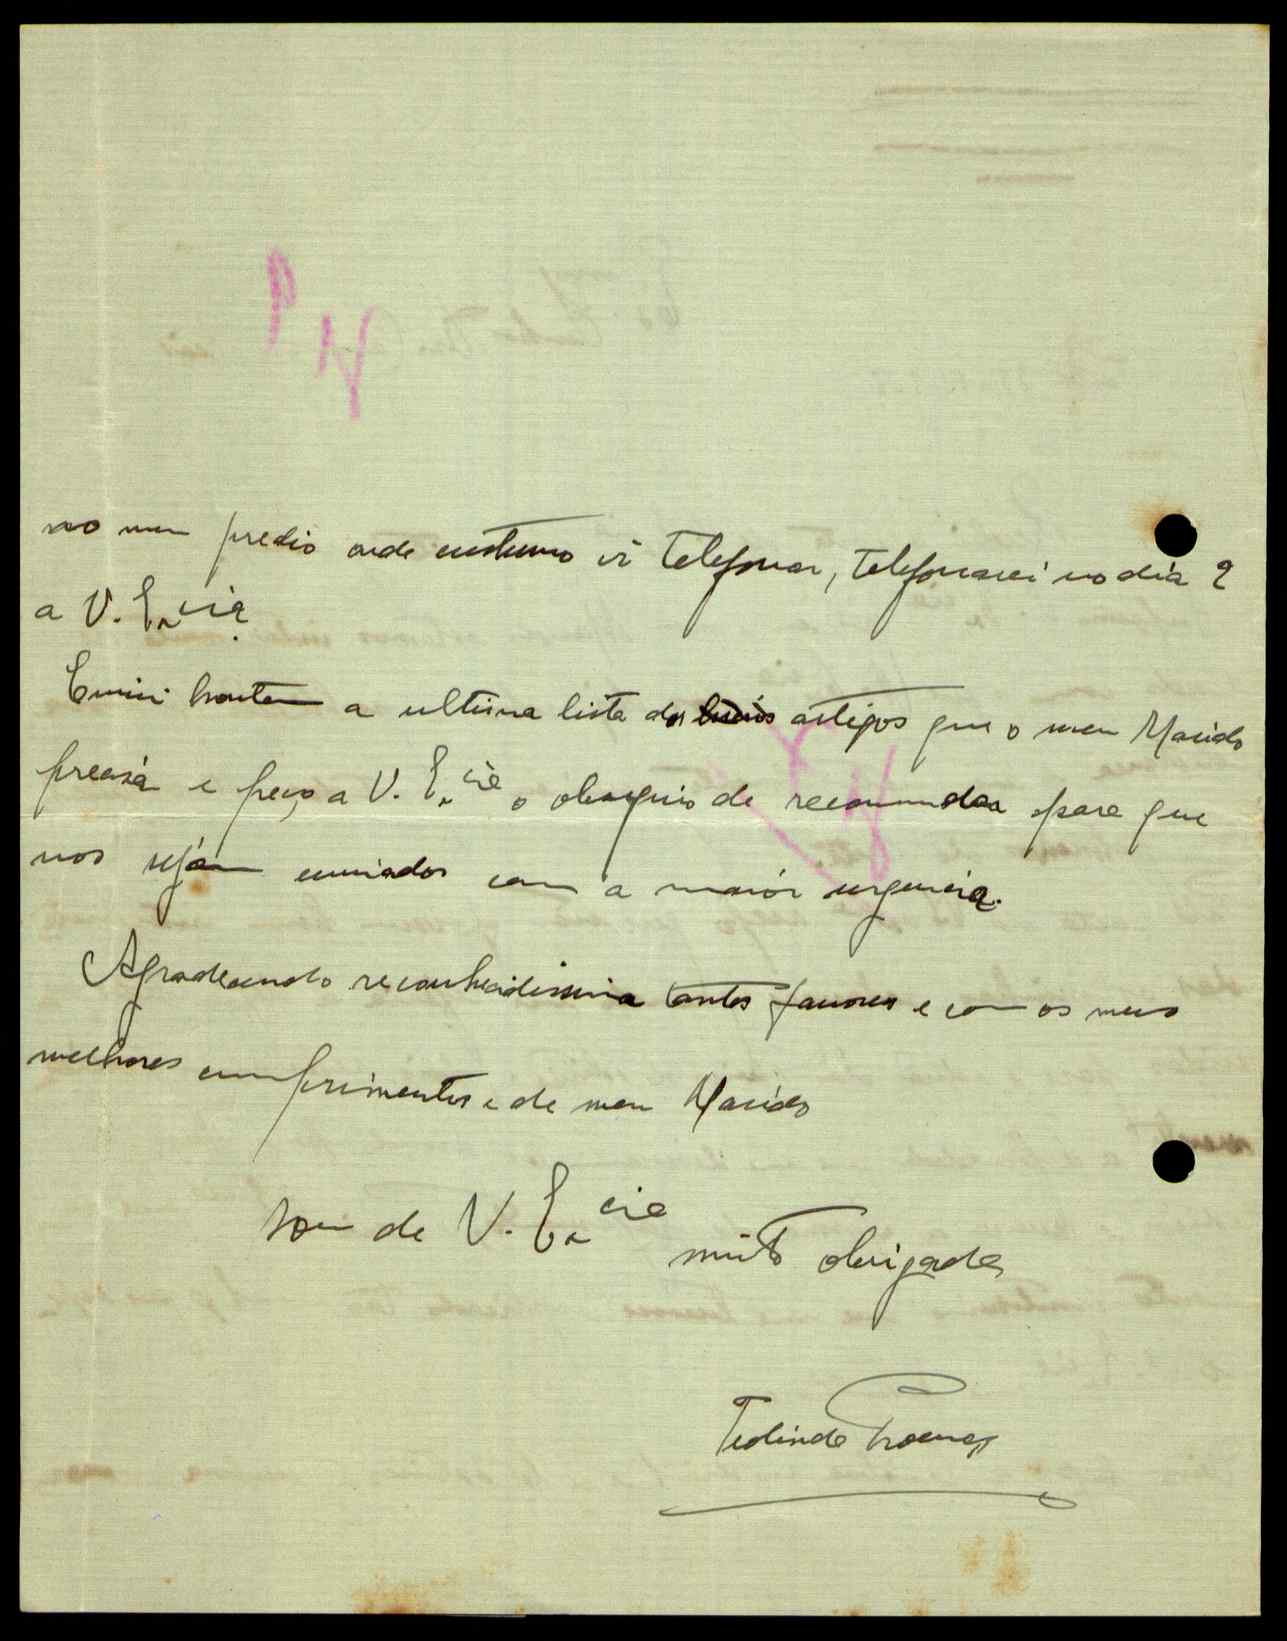 no meu predio onde costumo ir telefonar, telefonarei no dia 2
a V. Ex.cia
Enviei hontem a ultima lista dos artigos que o meu Marido
precisa e peço a V. Ex.cia o obsequio de recomendar para que
nos sejam enviados com a maior urgencia.
Agradecendo reconhecidissima tantos favores e com os meus
melhores cumprimentos e de meu Marido
sou de V. Ex.cia
muito obrigada
Teolinda Proença